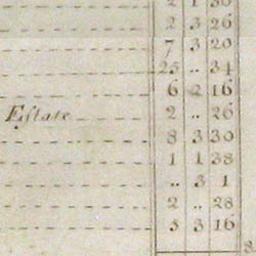 2 1 30
2 3 26
7 3 20
25 .. 34
6 2 16
Estate 2 .. 26
8 3 30
1 1 38
.. 3 1
2 .. 28
5 3 16
8